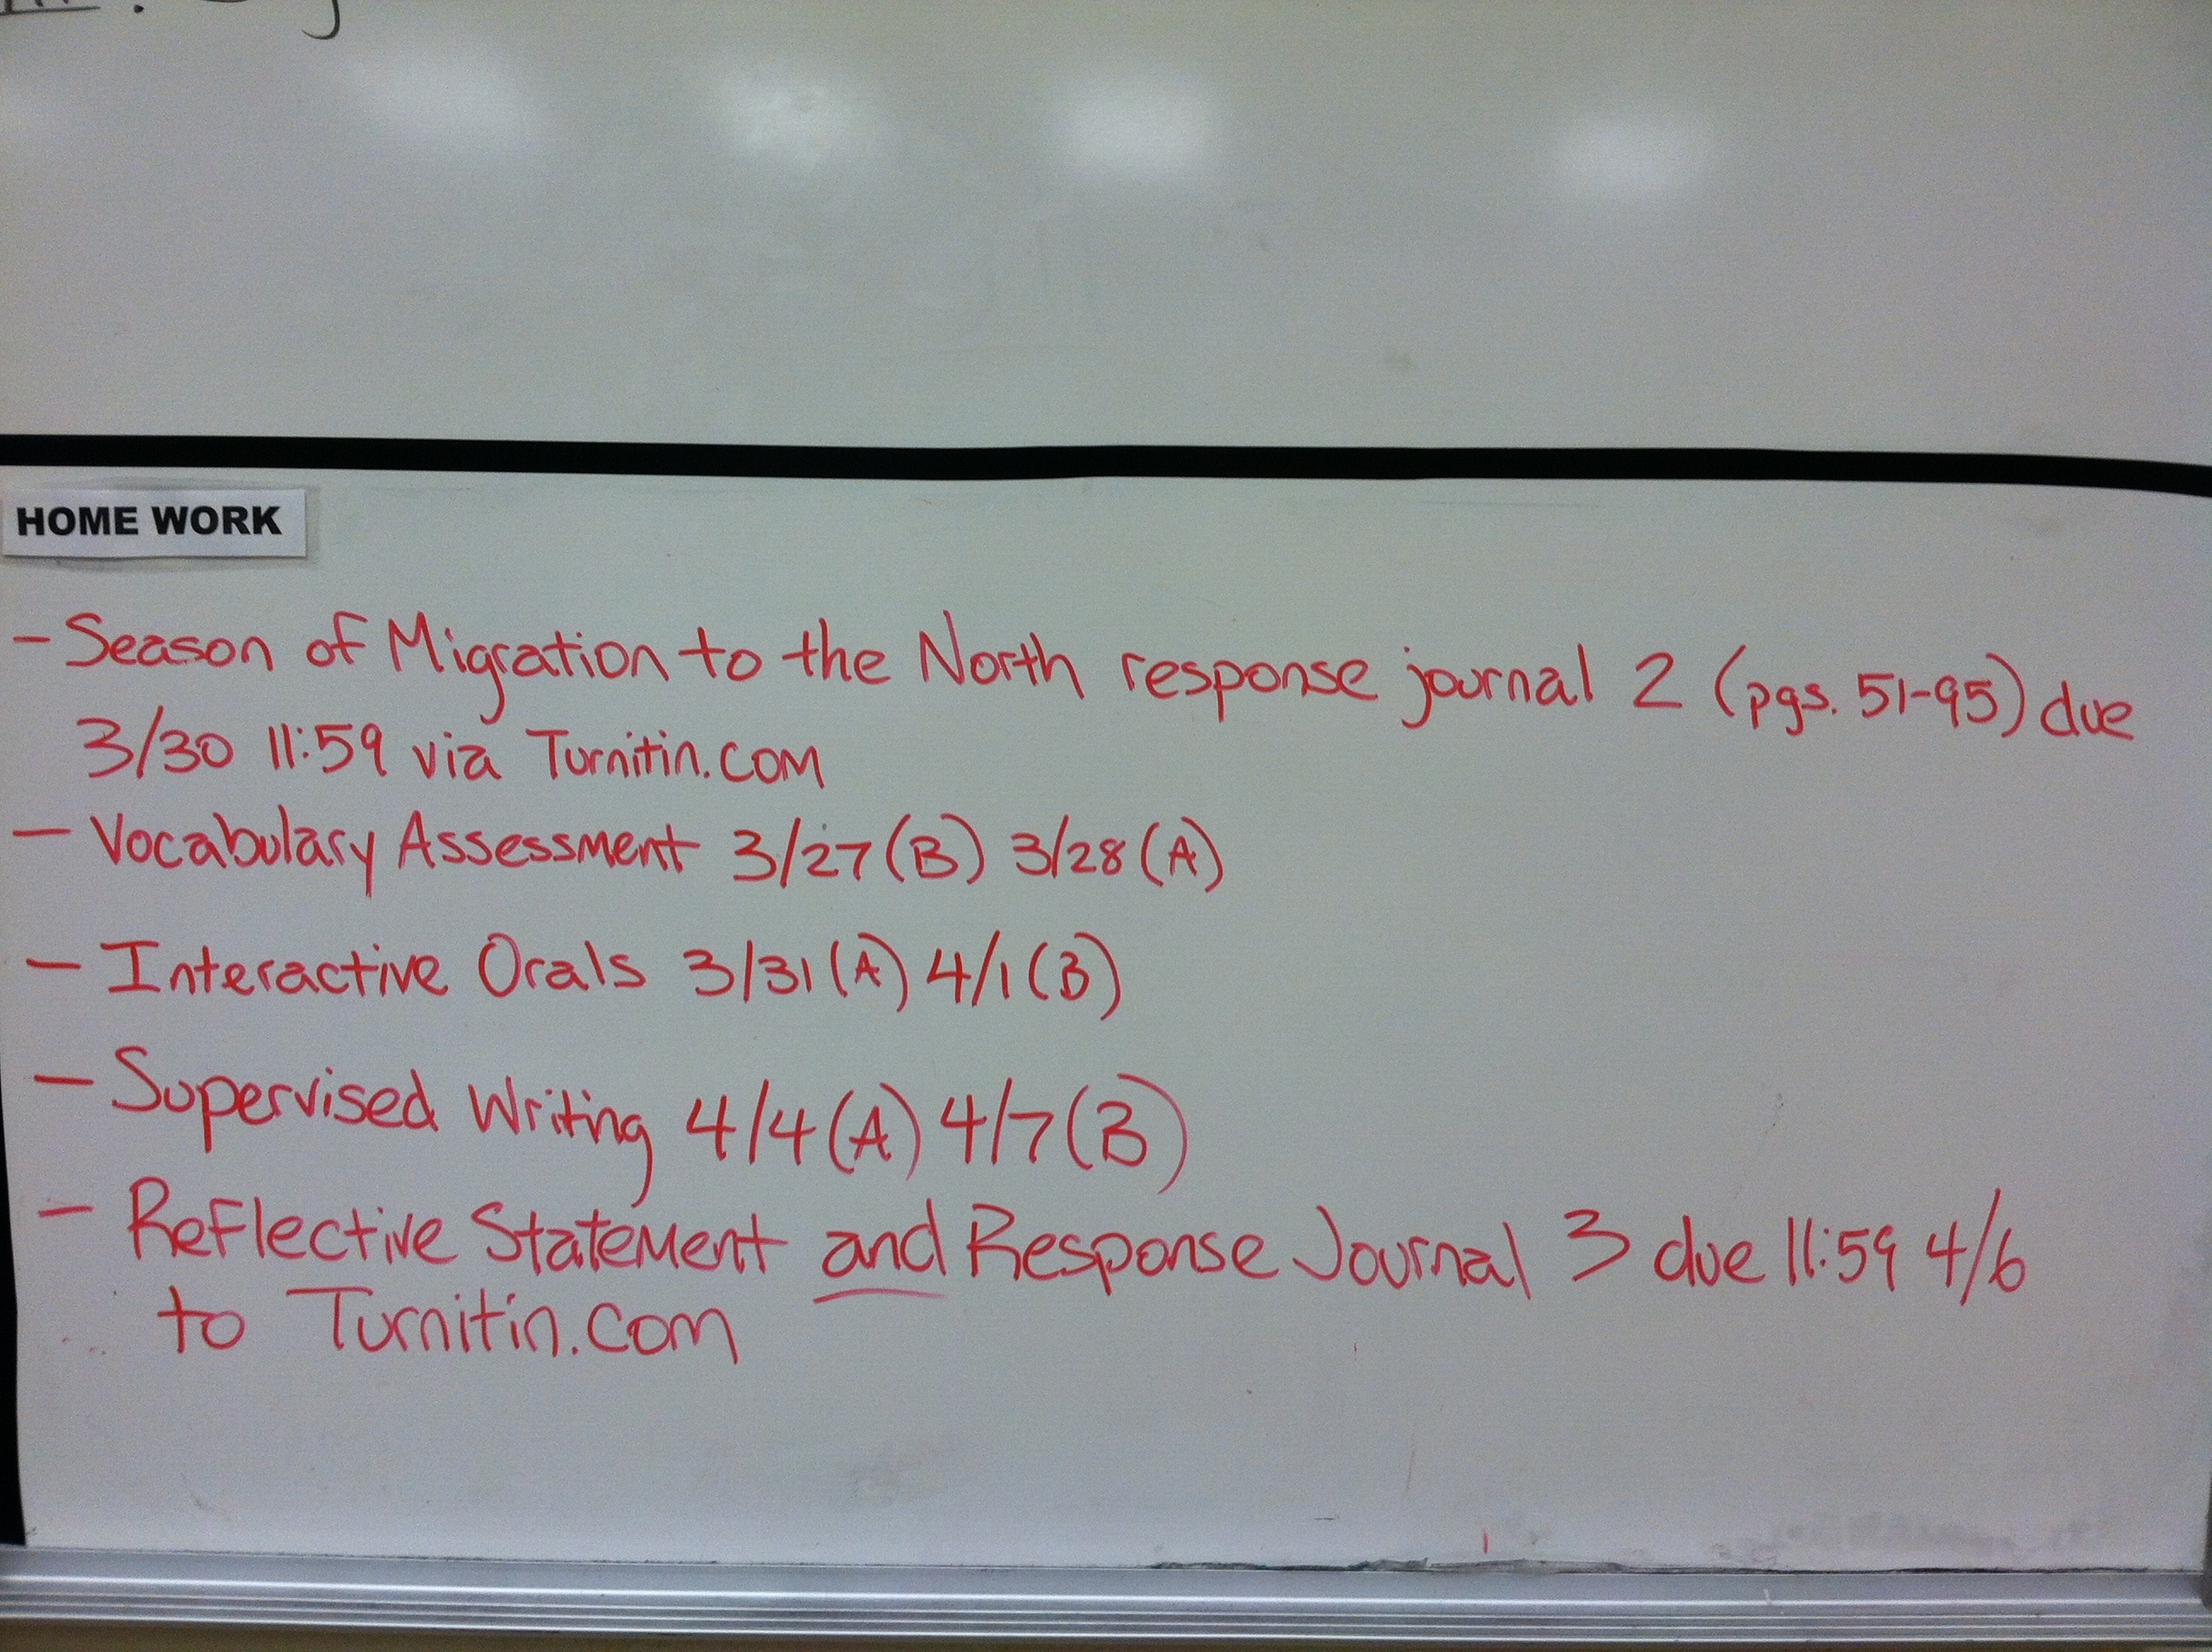 HOME WORK
- Season of Migration to the North response journal 2 (pgs. 51-95) due
3/30 11:59 via Turnitin.com
- Vocabulary Assessment 3/27 (B) 3/28 (A)
- Interactive Orals 3/31 (A) 4/1 (B)
- Supervised Writing 4/4 (A) 4/7 (B)
- Reflective Statement and Response Journal 3 due 11:59 4/6
to Turnitin.com